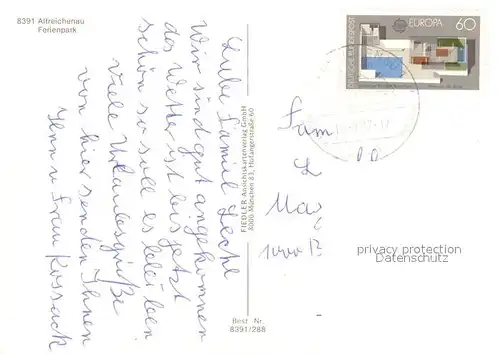 8391 Altreichenau
Ferienpark
Liebe Familie Lechl
Wir sind gut angekommen
das Wetter ist bis jetzt
schön so soll es bleiben
Viele Urlaubsgrüße
von hier senden Ihnen
Herr u Frau Kossack
FIEDLER Ansichtskartenverlag GmbH
8000 München 83, Hofangerstraße 60
Best. Nr.
8391/288
DEUTSCHE BUNDESPOST
EUROPA 60
Fam
L
May
1000 B
privacy protection
Datenschutz